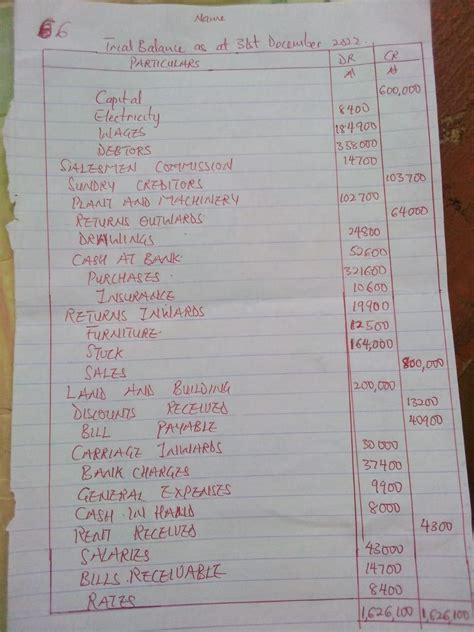 Name
66
Trial Balance as at 31st December 2022.
PARTICULARS DR CR
₦ ₦
Capital 600,000
Electricity 8400
WAGES 184900
DEBTORS 358000
SALESMEN COMMISSION 14700
SUNDRY CREDITORS 103700
PLANT AND MACHINERY 102700
RETURNS OUTWARDS 64000
DRAWINGS 24800
CASH AT BANK 52600
PURCHASES 321600
INSURANCE 10600
RETURNS INWARDS 19900
FURNITURE 12500
STOCK 164,000
SALES 800,000
LAND AND BUILDING 200,000
DISCOUNTS RECEIVED 13200
BILL PAYABLE 40900
CARRIAGE INWARDS 30000
BANK CHARGES 37400
GENERAL EXPENSES 9900
CASH IN HAND 8000
RENT RECEIVED 4300
SALARIES 43000
BILLS RECEIVABLE 14700
RATES 8400
1,626,100 1,626,100